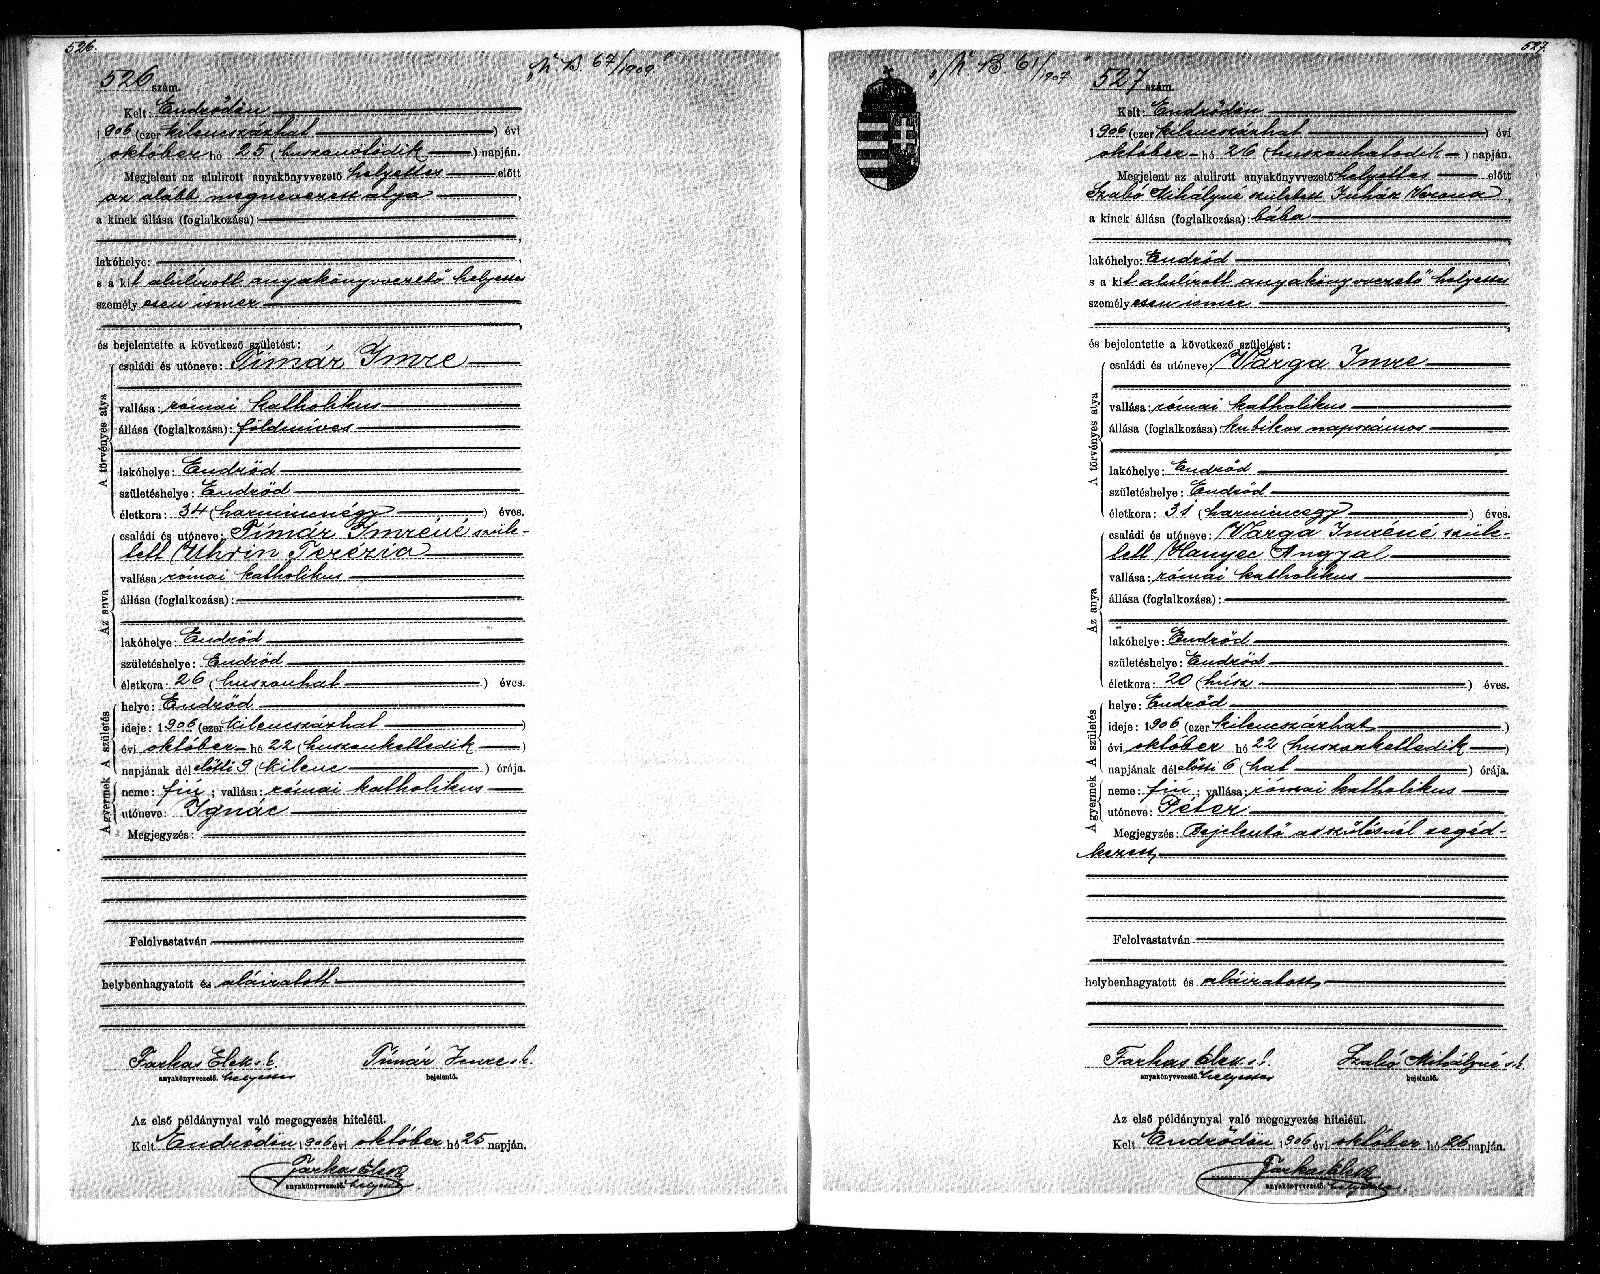 526.
„M. B. 67/1909“
526 szám.
Kelt: Endrődön
1906 (ezer kilencszázhat) évi
október hó 25 (huszonötödik) napján.
Megjelent az alulirott anyakönyvvezető helyettes előtt
az alább megnevezett atya,
a kinek állása (foglalkozása)
lakóhelye:
s a kit alulirott anyakönyvvezető helyettes
személyesen ismer
és bejelentette a következő születést:
A törvényes atya
családi és utóneve: Tímár Imre
vallása: római katholikus
állása (foglalkozása): földmíves
lakóhelye: Endrőd
születéshelye: Endrőd
életkora: 34 (harmincnégy) éves.
Az anya
családi és utóneve: Tímár Imréné szüle-
tett Uhrin Terézia
vallása: római katholikus
állása (foglalkozása):
lakóhelye: Endrőd
születéshelye: Endrőd
életkora: 26 (huszonhat) éves.
A születés
helye: Endrőd
ideje: 1906 (ezer kilencszázhat)
évi október hó 22 (huszonkettedik)
napjának délelőtti 9 (kilenc) órája.
A gyermek
neme: fiú; vallása: római katholikus
utóneve: Ignác
Megjegyzés:
Felolvastatván
helybenhagyatott és aláiratott
Farkas Elek s. k. Tímár Imre s. k.
anyakönyvvezető. helyettes bejelentő.
Az első példánynyal való megegyezés hiteléül.
Kelt Endrődön 1906 évi október hó 25 napján.
Farkas Elek
anyakönyvvezető. helyettes
527.
„M. B. 61/1907“
527 szám.
Kelt: Endrődön
1906 (ezer kilencszázhat) évi
október hó 26 (huszonhatodik) napján.
Megjelent az alulirott anyakönyvvezető helyettes előtt
Szabó Mihályné született Juhász Verona,
a kinek állása (foglalkozása): bába
lakóhelye: Endrőd
s a kit alulirott anyakönyvvezető helyettes
személyesen ismer
és bejelentette a következő születést:
A törvényes atya
családi és utóneve: Varga Imre
vallása: római katholikus
állása (foglalkozása): kubikos napszámos
lakóhelye: Endrőd
születéshelye: Endrőd
életkora: 31 (harmincegy) éves.
Az anya
családi és utóneve: Varga Imréné szüle-
tett Hanyec Angyal
vallása: római katholikus
állása (foglalkozása):
lakóhelye: Endrőd
születéshelye: Endrőd
életkora: 20 (húsz) éves.
A születés
helye: Endrőd
ideje: 1906 (ezer kilencszázhat)
évi október hó 22 (huszonkettedik)
napjának délelőtti 6 (hat) órája.
A gyermek
neme: fiú; vallása: római katholikus
utóneve: Péter
Megjegyzés: Bejelentő a szülésnél segéd-
kezett,
Felolvastatván
helybenhagyatott és aláiratott
Farkas Elek s. k. Szabó Mihályné s. k.
anyakönyvvezető. helyettes bejelentő.
Az első példánynyal való megegyezés hiteléül.
Kelt Endrődön 1906 évi október hó 26 napján.
Farkas Elek
anyakönyvvezető. helyettes